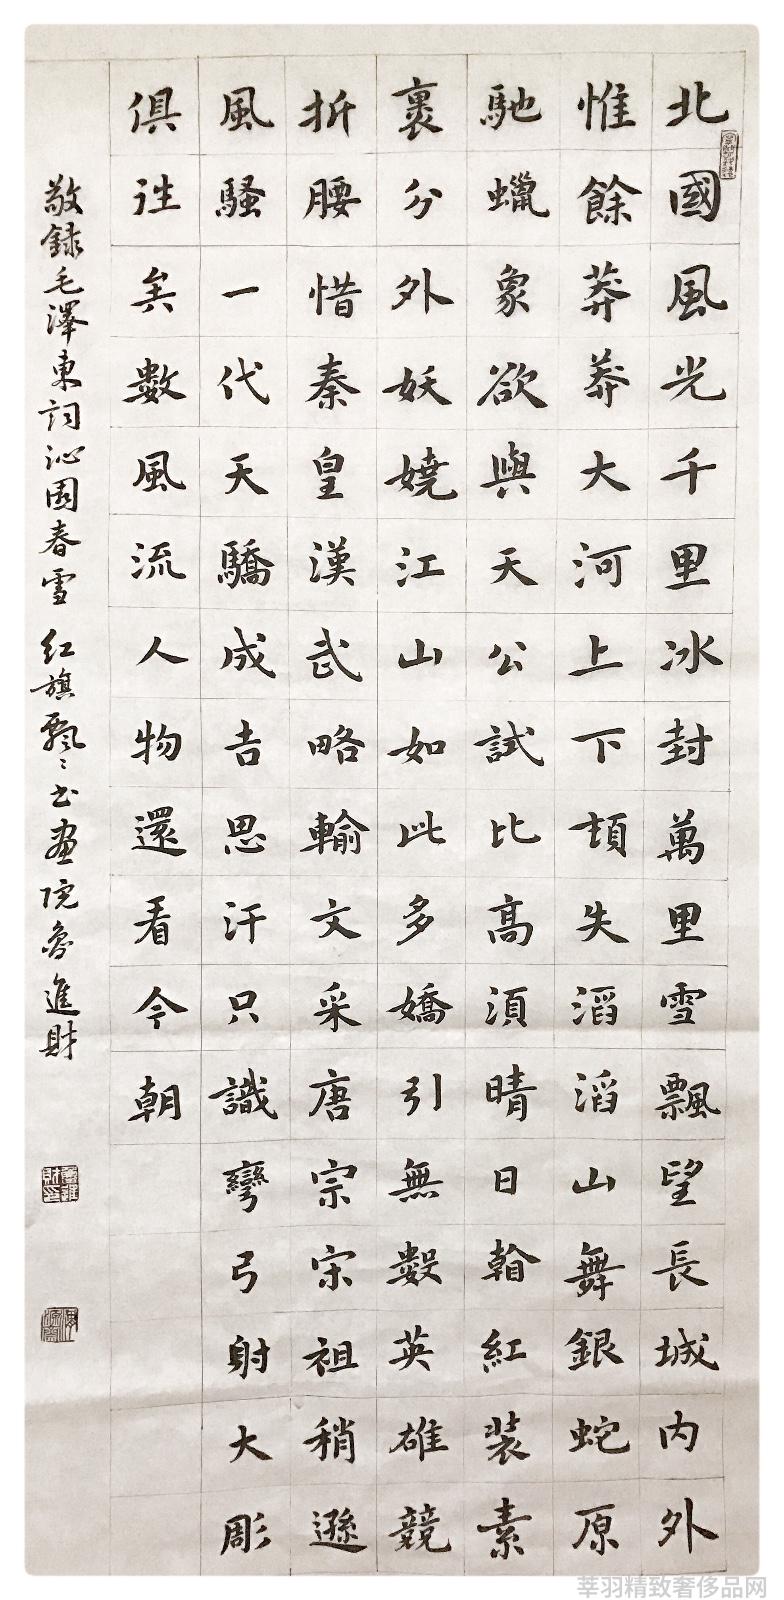 北國風光千里冰封萬里雪飄望長城内外
惟餘莽莽大河上下頓失滔滔山舞銀蛇原
馳蠟象欲與天公試比高須晴日翰紅裝素
裹分外妖嬈江山如此多嬌引無數英雄競
折腰惜秦皇漢武略輸文采唐宗宋祖稍遜
風騷一代天驕成吉思汗只識彎弓射大彫
俱往矣數風流人物還看今朝
敬録毛澤東詞沁園春雪 紅旗飄〻书畫院魯進財
莘羽精致奢侈品网